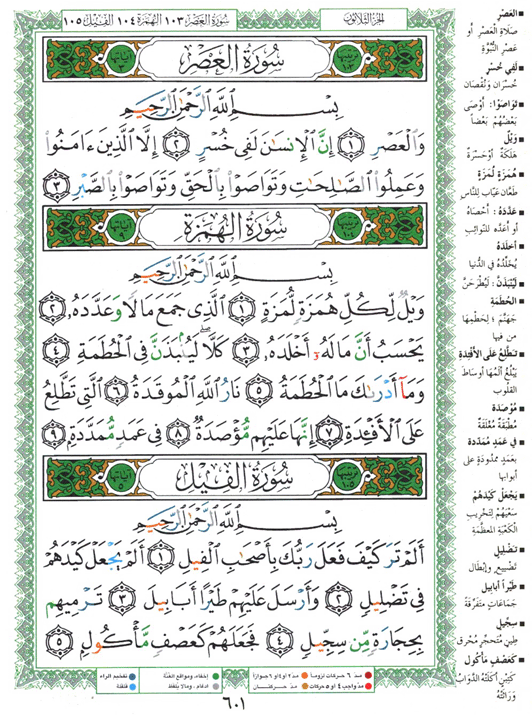 الجزء الثلاثون
سورة العصر ١٠٣ الهمزة ١٠٤ الفيل ١٠٥
سُورَةُ العَصْرِ
بِسْمِ ٱللَّهِ ٱلرَّحْمَٰنِ ٱلرَّحِيمِ
وَٱلْعَصْرِ ١ إِنَّ ٱلْإِنسَٰنَ لَفِى خُسْرٍ ٢ إِلَّا ٱلَّذِينَ ءَامَنُوا۟
وَعَمِلُوا۟ ٱلصَّٰلِحَٰتِ وَتَوَاصَوْا۟ بِٱلْحَقِّ وَتَوَاصَوْا۟ بِٱلصَّبْرِ ٣
سُورَةُ الهُمَزَةِ
بِسْمِ ٱللَّهِ ٱلرَّحْمَٰنِ ٱلرَّحِيمِ
وَيْلٌ لِّكُلِّ هُمَزَةٍ لُّمَزَةٍ ١ ٱلَّذِى جَمَعَ مَالًا وَعَدَّدَهُۥ ٢
يَحْسَبُ أَنَّ مَالَهُۥٓ أَخْلَدَهُۥ ٣ كَلَّا ۖ لَيُنۢبَذَنَّ فِى ٱلْحُطَمَةِ ٤
وَمَآ أَدْرَىٰكَ مَا ٱلْحُطَمَةُ ٥ نَارُ ٱللَّهِ ٱلْمُوقَدَةُ ٦ ٱلَّتِى تَطَّلِعُ
عَلَى ٱلْأَفْـِٔدَةِ ٧ إِنَّهَا عَلَيْهِم مُّؤْصَدَةٌ ٨ فِى عَمَدٍ مُّمَدَّدَةٍۭ ٩
سُورَةُ الفِيلِ
بِسْمِ ٱللَّهِ ٱلرَّحْمَٰنِ ٱلرَّحِيمِ
أَلَمْ تَرَ كَيْفَ فَعَلَ رَبُّكَ بِأَصْحَٰبِ ٱلْفِيلِ ١ أَلَمْ يَجْعَلْ كَيْدَهُمْ
فِى تَضْلِيلٍ ٢ وَأَرْسَلَ عَلَيْهِمْ طَيْرًا أَبَابِيلَ ٣ تَرْمِيهِم
بِحِجَارَةٍ مِّن سِجِّيلٍ ٤ فَجَعَلَهُمْ كَعَصْفٍ مَّأْكُولٍۭ ٥
العَصْرِ
صلاة العَصْر أو
عَصْر النُّبُوَّة
لَفِي خُسْر
خُسْرَان وَنُقْصَان
تَوَاصَوْا: أَوْصَى
بَعْضُهُمْ بَعْضاً
وَيْلٌ
هَلَكَة أوْ حَسْرَة
هُمَزَةٍ لُمَزَة
طَعَّان عَيَّاب للنَّاس
عَدَّدَهُ: أحْصَاهُ
أو أعَدَّه للنَّوائِب
أخْلَدَهُ
يُخَلِّدُهُ في الدنيا
لَيُنْبَذَنَّ: لَيُطْرَحَنَّ
الحُطَمَة
جَهَنَّم؛ لِحَطمِها
من فيها
تَطَّلِعُ على الأفْئِدَةِ
يَبْلُغُ ألَمُهَا أوساط
القلُوب
مُؤْصَدَة
مُطْبَقَةٌ مُغْلَقَةٌ
في عَمَدٍ مُمَدَّدة
بعَمَدٍ ممدُودَةٍ على
أبوابها
يَجْعَلْ كَيْدَهُمْ
سَعْيَهُمْ لِتَخْرِيبِ
الكَعْبَةِ المُعَظَّمَةِ
تَضْلِيلٍ
تَضْييع وإبْطَال
طَيْراً أبَابِيلَ
جَمَاعَاتٍ مُتَفَرِّقَةً
سِجِّيلٍ
طِينٍ مُتَحَجِّرٍ مُحْرَق
كَعَصْفٍ مَأكُول
كَتِبْنٍ أكَلَتْهُ الدَّوَابُّ
وَرَاثَتْهُ
مدّ ٦ حركات لزوماً
مدّ ٢ أو ٤ أو ٦ جوازاً
إخفاء، ومواقع الغنّة
تفخيم الراء
مدّ واجب ٤ أو ٥ حركات
مدّ حركتان
إدغام، وما لا يُلفظ
قلقلة
٦٠١